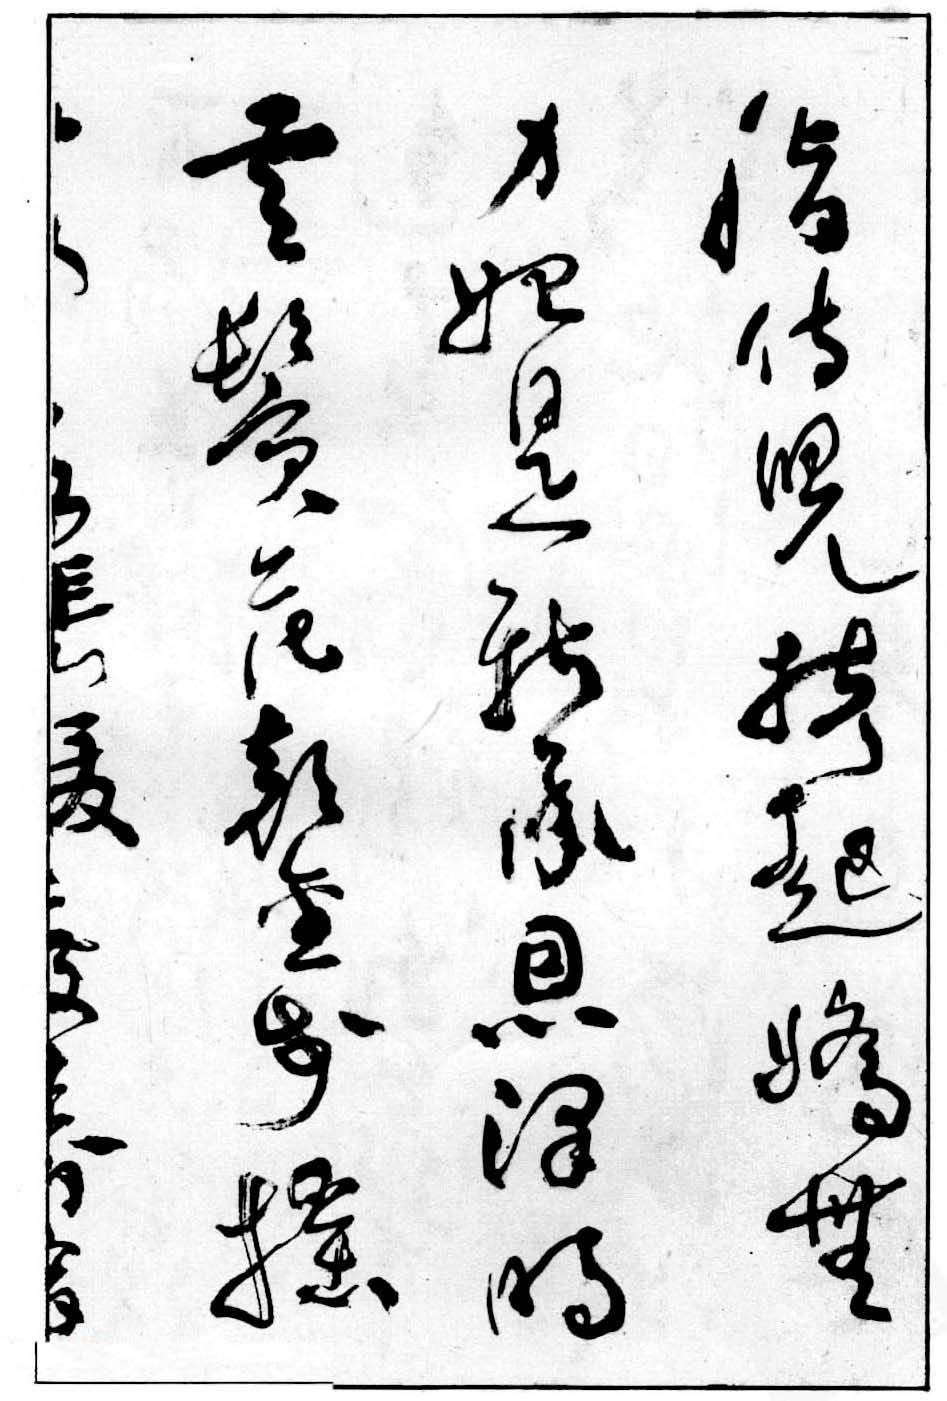 脂侍兒扶起嬌無
力始是新承恩澤時
雲鬢花顏金步搖